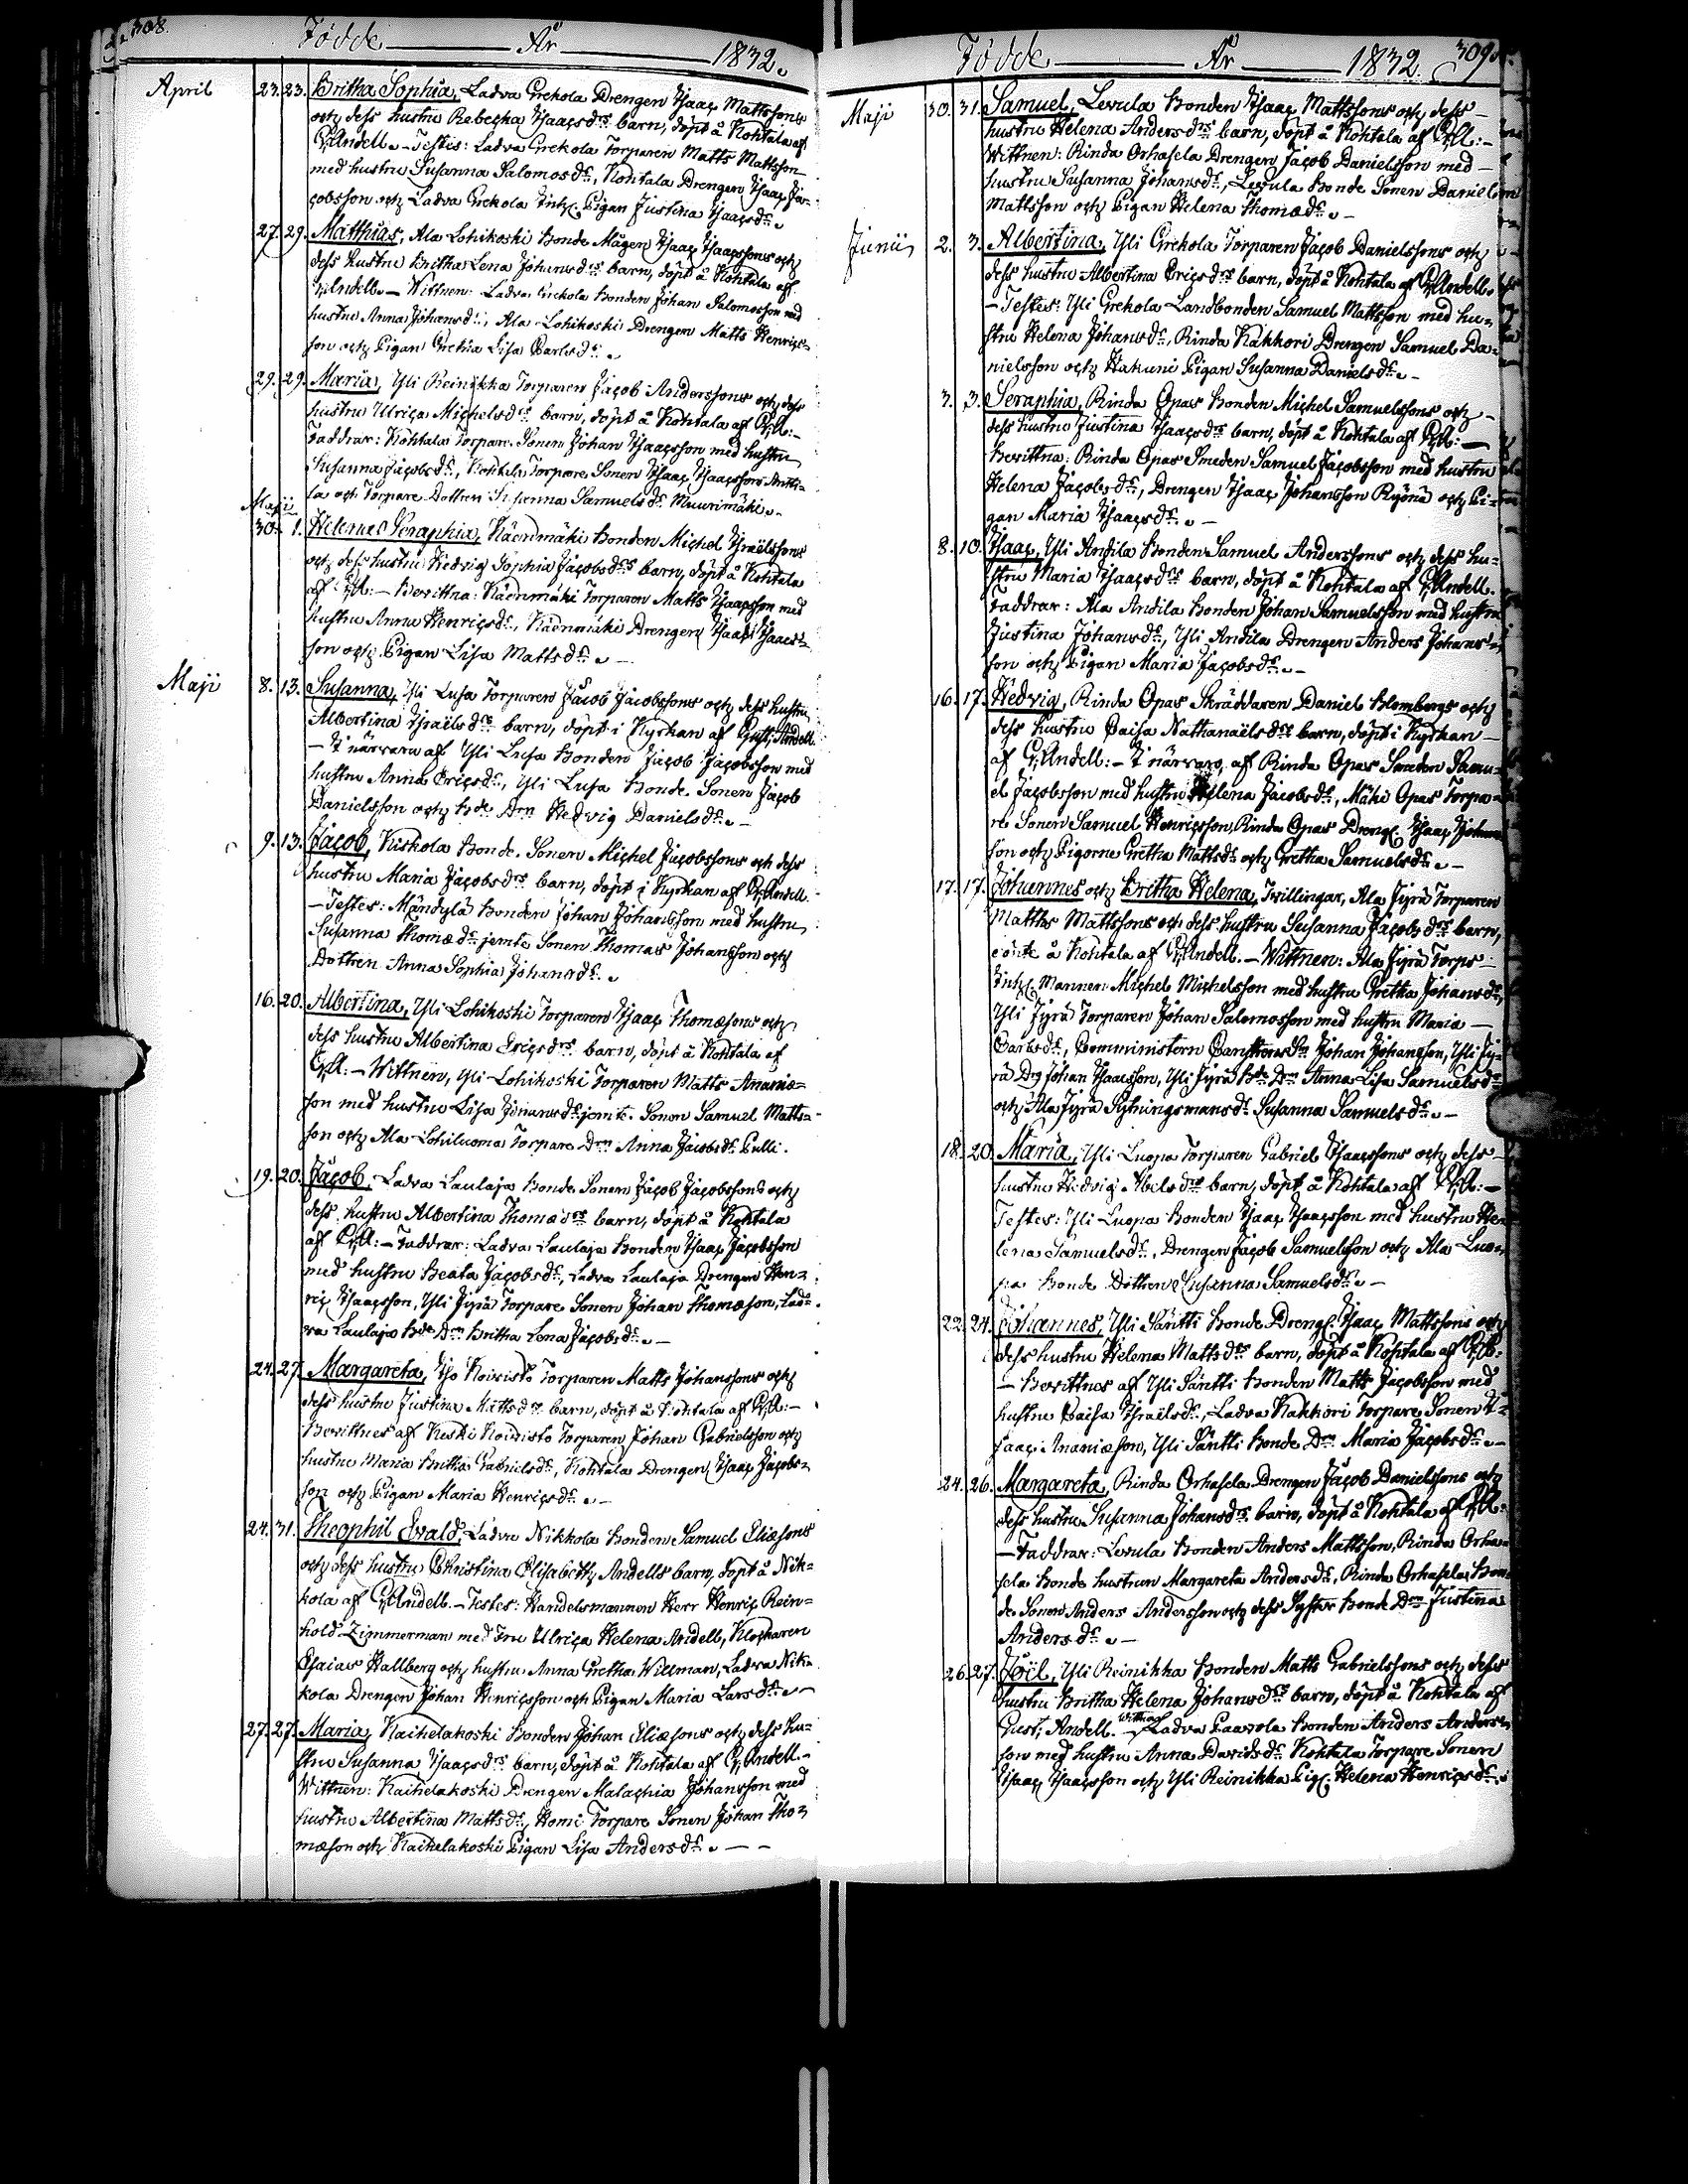 308.
Födde År 1832.
April 23. 23. Britha Sophia, Ladva Grekola Drengen Isaac Mattssons
och dess hustru Rebecka Isaacsdrs barn, döpt å Kohtala af
G; Andell. – Testes: Ladva Grekola Torparen Matts Mattsson
med hustru Susanna Salomosdr, Kohtala Drengen Isaac Ja-
cobsson och Ladva Grekola Inh; Pigan Justina Isaacsdr.
27. 29. Matthias, Ala Lohikoski Bonde Mågen Isaac Isaacssons och
dess hustru Britha Lena Johansdrs barn, döpt å Kohtala af
G; Andell. – Wittnen: Ladva Grekola Bonden Johan Salomosson med
hustru Anna Johansdr, Ala Lohikoski Drengen Matts Henrics-
son och Pigan Gretha Lisa Carlsdr.
29. 29. Maria, Yli Reinikka Torparen Jacob Anderssons och dess
hustru Ulrica Michelsdrs barn, döpt å Kohtala af G; A: –
Faddrar: Kohtala Torpare Sonen Johan Isaacsson med hustru
Susanna Jacobsdr, Kohtala Torpare Sonen Isaac Isaacsson Antti-
la och Torpare Dottren Susanna Samuelsdr Muurimäki.
Maji
30. 1. Helena Seraphia, Käenmäki Bonden Michel Israëlssons
och dess hustru Hedvig Sophia Jacobsdrs barn, döpt å Kohtala
af G; A: – Bevittna: Käenmäki Torparen Matts Isaacsson med
hustru Anna Henricsdr, Käenmäki Drengen Isaac Isaacs-
son och Pigan Lisa Mattsdr. –
Maji 8. 13. Susanna, Yli Lusa Torparen Jacob Jacobssons och dess hustru
Albertina Israëlsdrs barn, döpt i Kyrkan af Gust; Andell.
– I närvaro af Yli Lusa Bonden Jacob Jacobsson med
hustru Anna Ericsdr, Yli Lusa Bonde Sonen Jacob
Danielsson och Bde Drn Hedvig Danielsdr. –
9. 13. Jacob, Kiskola Bonde Sonen Michel Jacobssons och dess
hustru Maria Jacobsdrs barn, döpt i Kyrkan af G; Andell.
– Testes: Mändylä Bonden Johan Johansson med hustru
Susanna Thomædr jemte Sonen Thomas Johansson och
Dottren Anna Sophia Johansdr.
16. 20. Albertina, Yli Lohikoski Torparen Isaac Thomæsons och
dess hustru Albertina Ericsdrs barn, döpt å Kohtala af
G; A: – Wittnen, Yli Lohikoski Torparen Matts Ananiæ-
son med hustru Lisa Johansdr jemte Sonen Samuel Matts-
son och Ala Lohiluoma Torpare Drn Anna Jacobsdr Pulli.
19. 20. Jacob, Ladva Laulaja Bonde Sonen Jacob Jacobssons och
dess hustru Albertina Thomædrs barn, döpt å Kohtala
af G; A: – Faddrar: Ladva Laulaja Bonden Isaac Jacobsson
med hustru Beata Jacobsdr, Ladva Laulaja Drengen Hen-
ric Isaacsson, Yli Jyrä Torpare Sonen Johan Thomæson, Lad-
va Laulaja Bde Drn Britha Lena Jacobsdr. –
24. 27. Margareta, Iso Koivisto Torparen Matts Johanssons och
dess hustru Justina Mattsdrs barn, döpt å Kohtala af G; A: –
Bevittnes af Keski Koivisto Torparen Johan Gabrielsson och
hustru Maria Britha Gabrielsdr, Kohtala Drengen Isaac Jacobs-
son och Pigan Maria Henricsdr. –
24. 31. Theophil Evald, Ladva Nikkola Bonden Samuel Eliæsons
och dess hustru Christina Elisabeth Andells barn, döpt å Nik-
kola af G; Andell. – Testes: Handelsmannen Herr Henric Rein-
hold Zimmerman med Fru Ulrica Helena Andell, Klockaren
Esaias Hallberg och hustru Anna Gretha Willman, Ladva Nik-
kola Drengen Johan Henricsson och Pigan Maria Larsdr. –
27. 27. Maria, Kaihelakoski Bonden Johan Eliæsons och dess hu-
stru Susanna Isaacsdrs barn, döpt å Kohtala af G; Andell. –
Wittnen: Kaihelakoski Drengen Malachia Johansson med
hustru Albertina Mattsdr, Homi Torpare Sonen Johan Tho-
mæson och Kaihelakoski Pigan Lisa Andersdr. – –
309.
Födde År 1832.
Maji 30. 31. Samuel, Levula Bonden Isaac Mattssons och dess
hustru Helena Andersdrs barn, döpt å Kohtala af G; A: –
Wittnen: Rinda Orhasela Drengen Jacob Danielsson med
hustru Susanna Johansdr, Levula Bonde Sonen Daniel
Mattsson och Pigan Helena Thomædr. –
Junii 2. 3. Albertina, Yli Grekola Torparen Jacob Danielssons och
dess hustru Albertina Ericsdrs barn, döpt å Kohtala af G; Andell.
– Testes: Yli Grekola Landbonden Samuel Mattsson med hu-
stru Helena Johansdr, Rinda Kakkori Drengen Samuel Da-
nielsson och Hakuni Pigan Susanna Danielsdr. –
3. 3. Seraphia, Rinda Opas Bonden Michel Samuelssons och
dess hustru Justina Isaacsdrs barn, döpt å Kohtala af G; A: –
Bevittna: Rinda Opas Smeden Samuel Jacobsson med hustru
Helena Jacobsdr, Drengen Isaac Johansson Ryönä och Pi-
gan Maria Isaacsdr. –
8. 10. Isaac, Yli Andila Bonden Samuel Anderssons och dess hu-
stru Maria Isaacsdrs barn, döpt å Kohtala af G; Andell.
Faddrar: Ala Andila Bonden Johan Samuelsson med hustru
Justina Johansdr, Yli Andila Drengen Anders Johans-
son och Pigan Maria Jacobsdr. –
16. 17. Hedvig, Rinda Opas Skräddaren Daniel Blombergs och
dess hustru Caisa Nathanaëlsdrs barn, döpt i Kyrkan
af G; Andell: – I närvaro af Rinda Opas Smeden Samu-
el Jacobsson med hustru Helena Jacobsdr, Mäki Opas Torpa-
re Sonen Samuel Henricsson, Rinda Opas Dreng; Isaac Johans
son och Pigorne Gretha Mattsdr och Gretha Samuelsdr. –
17. 17. Johannes och Britha Helena, Tvillingar, Ala Jyrä Torparen
Matths Mattssons och dess hustru Susanna Jacobsdrs barn,
döpte å Kohtala af G; Andell. – Wittnen: Ala Jyrä Torps
Inh; Mannen Michel Michelsson med hustru Gretha Johansdr,
Yli Jyrä Torparen Johan Salomosson med hustru Maria
Carlsdr, Comministern Johan Johansson, Yli Jy-
rä Drg Johan Isaacsson, Yli Jyrä Bde Drn Anna Lisa Samuelsdr
och Ala Jyrä Sytningsmansdr Susanna Samuelsdr. –
18. 20. Maria, Yli Luopa Torparen Gabriel Isaacssons och dess
hustru Hedvig Abelsdrs barn, döpt å Kohtala af G; A: –
Testes: Yli Luopa Bonden Isaac Isaacsson med hustru He-
lena Samuelsdr, Drengen Jacob Samuelsson och Ala Luo-
pa Bonde Dottren Susanna Samuelsdr. –
22. 24. Johannes, Yli Säntti Bonde Dreng; Isaac Mattssons och
dess hustru Helena Mattsdrs barn, döpt å Kohtala af G; A:
– Bevittnas af Yli Säntti Bonden Matts Jacobsson med
hustru Caisa Israëlsdr, Ladva Kakkori Torpare Sonen I-
saac Ananiæson, Yli Säntti Bonde Drn Maria Jacobsdr. –
24. 26. Margareta, Rinda Orhasela Drengen Jacob Danielssons och
dess hustru Susanna Johansdrs barn, döpt å Kohtala af G; A:
– Faddrar: Levula Bonden Anders Mattsson, Rinda Orha-
sela Bonde hustrun Margareta Andersdr, Rinda Orhasela Bon-
de Sonen Anders Andersson och dess Syster Bonde Drn Justina
Andersdr. –
26. 27. Joël, Yli Reinikka Bonden Matts Gabrielssons och dess
hustru Britha Helena Johansdrs barn, döpt å Kohtala af
Gust; Andell. – Wittna: Ladva Paavola Bonden Anders Anders-
son med hustru Anna Davidsdr Kohtala Torpare Sonen
Isaac Isaacsson och Yli Reinikka Pig; Helena Henricsdr.